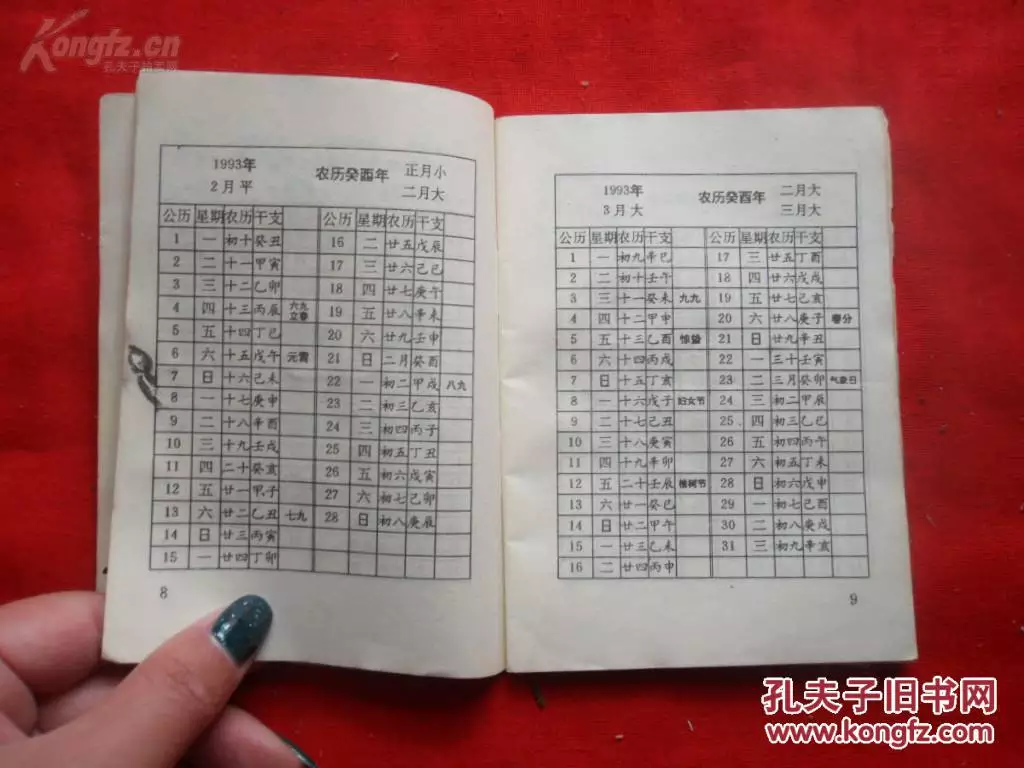 Kongfz.cn
孔夫子拍卖网
1993年 农历癸酉年 正月小
2月平 二月大
公历 星期 农历 干支 公历 星期 农历 干支
1 一 初十 癸丑 16 二 廿五 戊辰
2 二 十一 甲寅 17 三 廿六 己巳
3 三 十二 乙卯 18 四 廿七 庚午
4 四 十三 丙辰 六九 立春 19 五 廿八 辛未
5 五 十四 丁巳 20 六 廿九 壬申
6 六 十五 戊午 元宵 21 日 二月 癸酉
7 日 十六 己未 22 一 初二 甲戌 八九
8 一 十七 庚申 23 二 初三 乙亥
9 二 十八 辛酉 24 三 初四 丙子
10 三 十九 壬戌 25 四 初五 丁丑
11 四 二十 癸亥 26 五 初六 戊寅
12 五 廿一 甲子 27 六 初七 己卯
13 六 廿二 乙丑 七九 28 日 初八 庚辰
14 日 廿三 丙寅
15 一 廿四 丁卯
8
1993年 农历癸酉年 二月大
3月大 三月大
公历 星期 农历 干支 公历 星期 农历 干支
1 一 初九 辛巳 17 三 廿五 丁酉
2 二 初十 壬午 18 四 廿六 戊戌
3 三 十一 癸未 九九 19 五 廿七 己亥
4 四 十二 甲申 20 六 廿八 庚子 春分
5 五 十三 乙酉 惊蛰 21 日 廿九 辛丑
6 六 十四 丙戌 22 一 三十 壬寅
7 日 十五 丁亥 23 二 三月 癸卯 气象日
8 一 十六 戊子 妇女节 24 三 初二 甲辰
9 二 十七 己丑 25 四 初三 乙巳
10 三 十八 庚寅 26 五 初四 丙午
11 四 十九 辛卯 27 六 初五 丁未
12 五 二十 壬辰 植树节 28 日 初六 戊申
13 六 廿一 癸巳 29 一 初七 己酉
14 日 廿二 甲午 30 二 初八 庚戌
15 一 廿三 乙未 31 三 初九 辛亥
16 二 廿四 丙申
9
孔夫子旧书网
www.kongfz.com